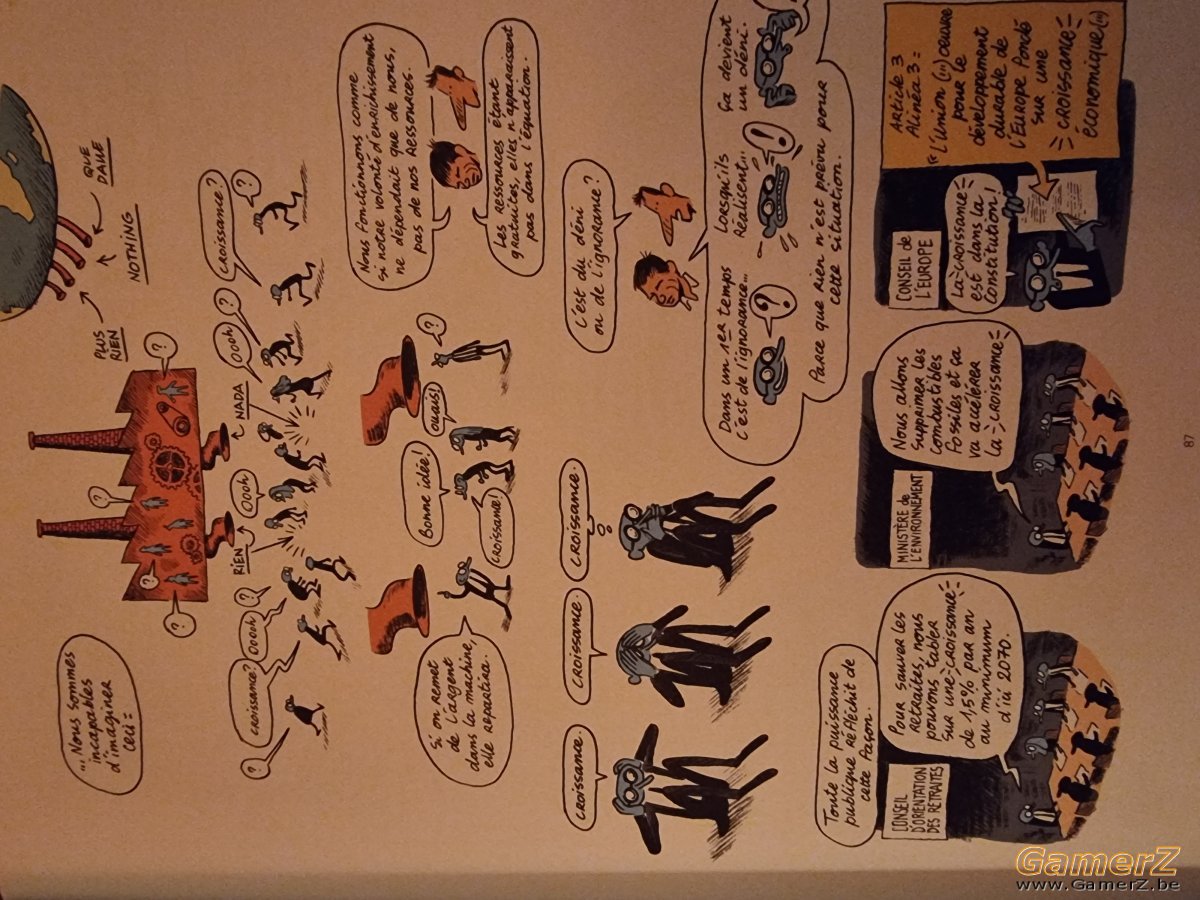 "... Nous sommes
incapables
d'imaginer
ceci :
?
?
?
?
PLUS
RIEN
NOTHING
QUE
DALLE
RIEN
NADA
?
CROISSANCE?
Oooh
?
Oooh
Oooh
?
CROISSANCE?
?
Si on remet
de l'argent
dans la machine,
elle repartira.
Bonne idée!
CROISSANCE!
Ouais!
?
Nous fonctionnons comme
si notre volonté d'enrichissement
ne dépendait que de nous,
pas de nos ressources.
Les ressources étant
gratuites, elles n'apparaissent
pas dans l'équation.
CROISSANCE.
CROISSANCE.
CROISSANCE.
C'est du déni
ou de l'ignorance?
Dans un 1er temps
c'est de l'ignorance...
?
Lorsqu'ils
réalisent...
!
Ça devient
un déni.
Parce que rien n'est prévu pour
cette situation.
Toute la puissance
publique réfléchit de
cette façon.
CONSEIL
D'ORIENTATION
DES RETRAITES
Pour sauver les
retraites, nous
pouvons tabler
sur une CROISSANCE
de 1,5% par an
au minimum
d'ici 2070.
MINISTÈRE de
L'ENVIRONNEMENT
Nous allons
supprimer les
combustibles
fossiles et ça
va accélérer
la CROISSANCE
CONSEIL de
L'EUROPE
La CROISSANCE
est dans la
Constitution!
Article 3
Alinéa 3 :
"L'Union (...) œuvre
pour le
développement
durable de
l'Europe fondé
sur une
CROISSANCE
économique (...)
87
GamerZ
www.GamerZ.be